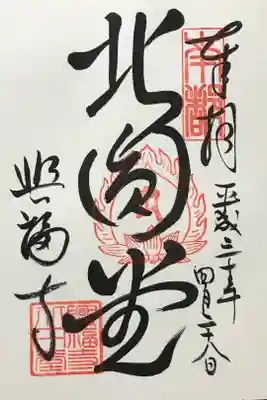 奉拝
平成三十年
四月二十八日
北圓堂
興福寺